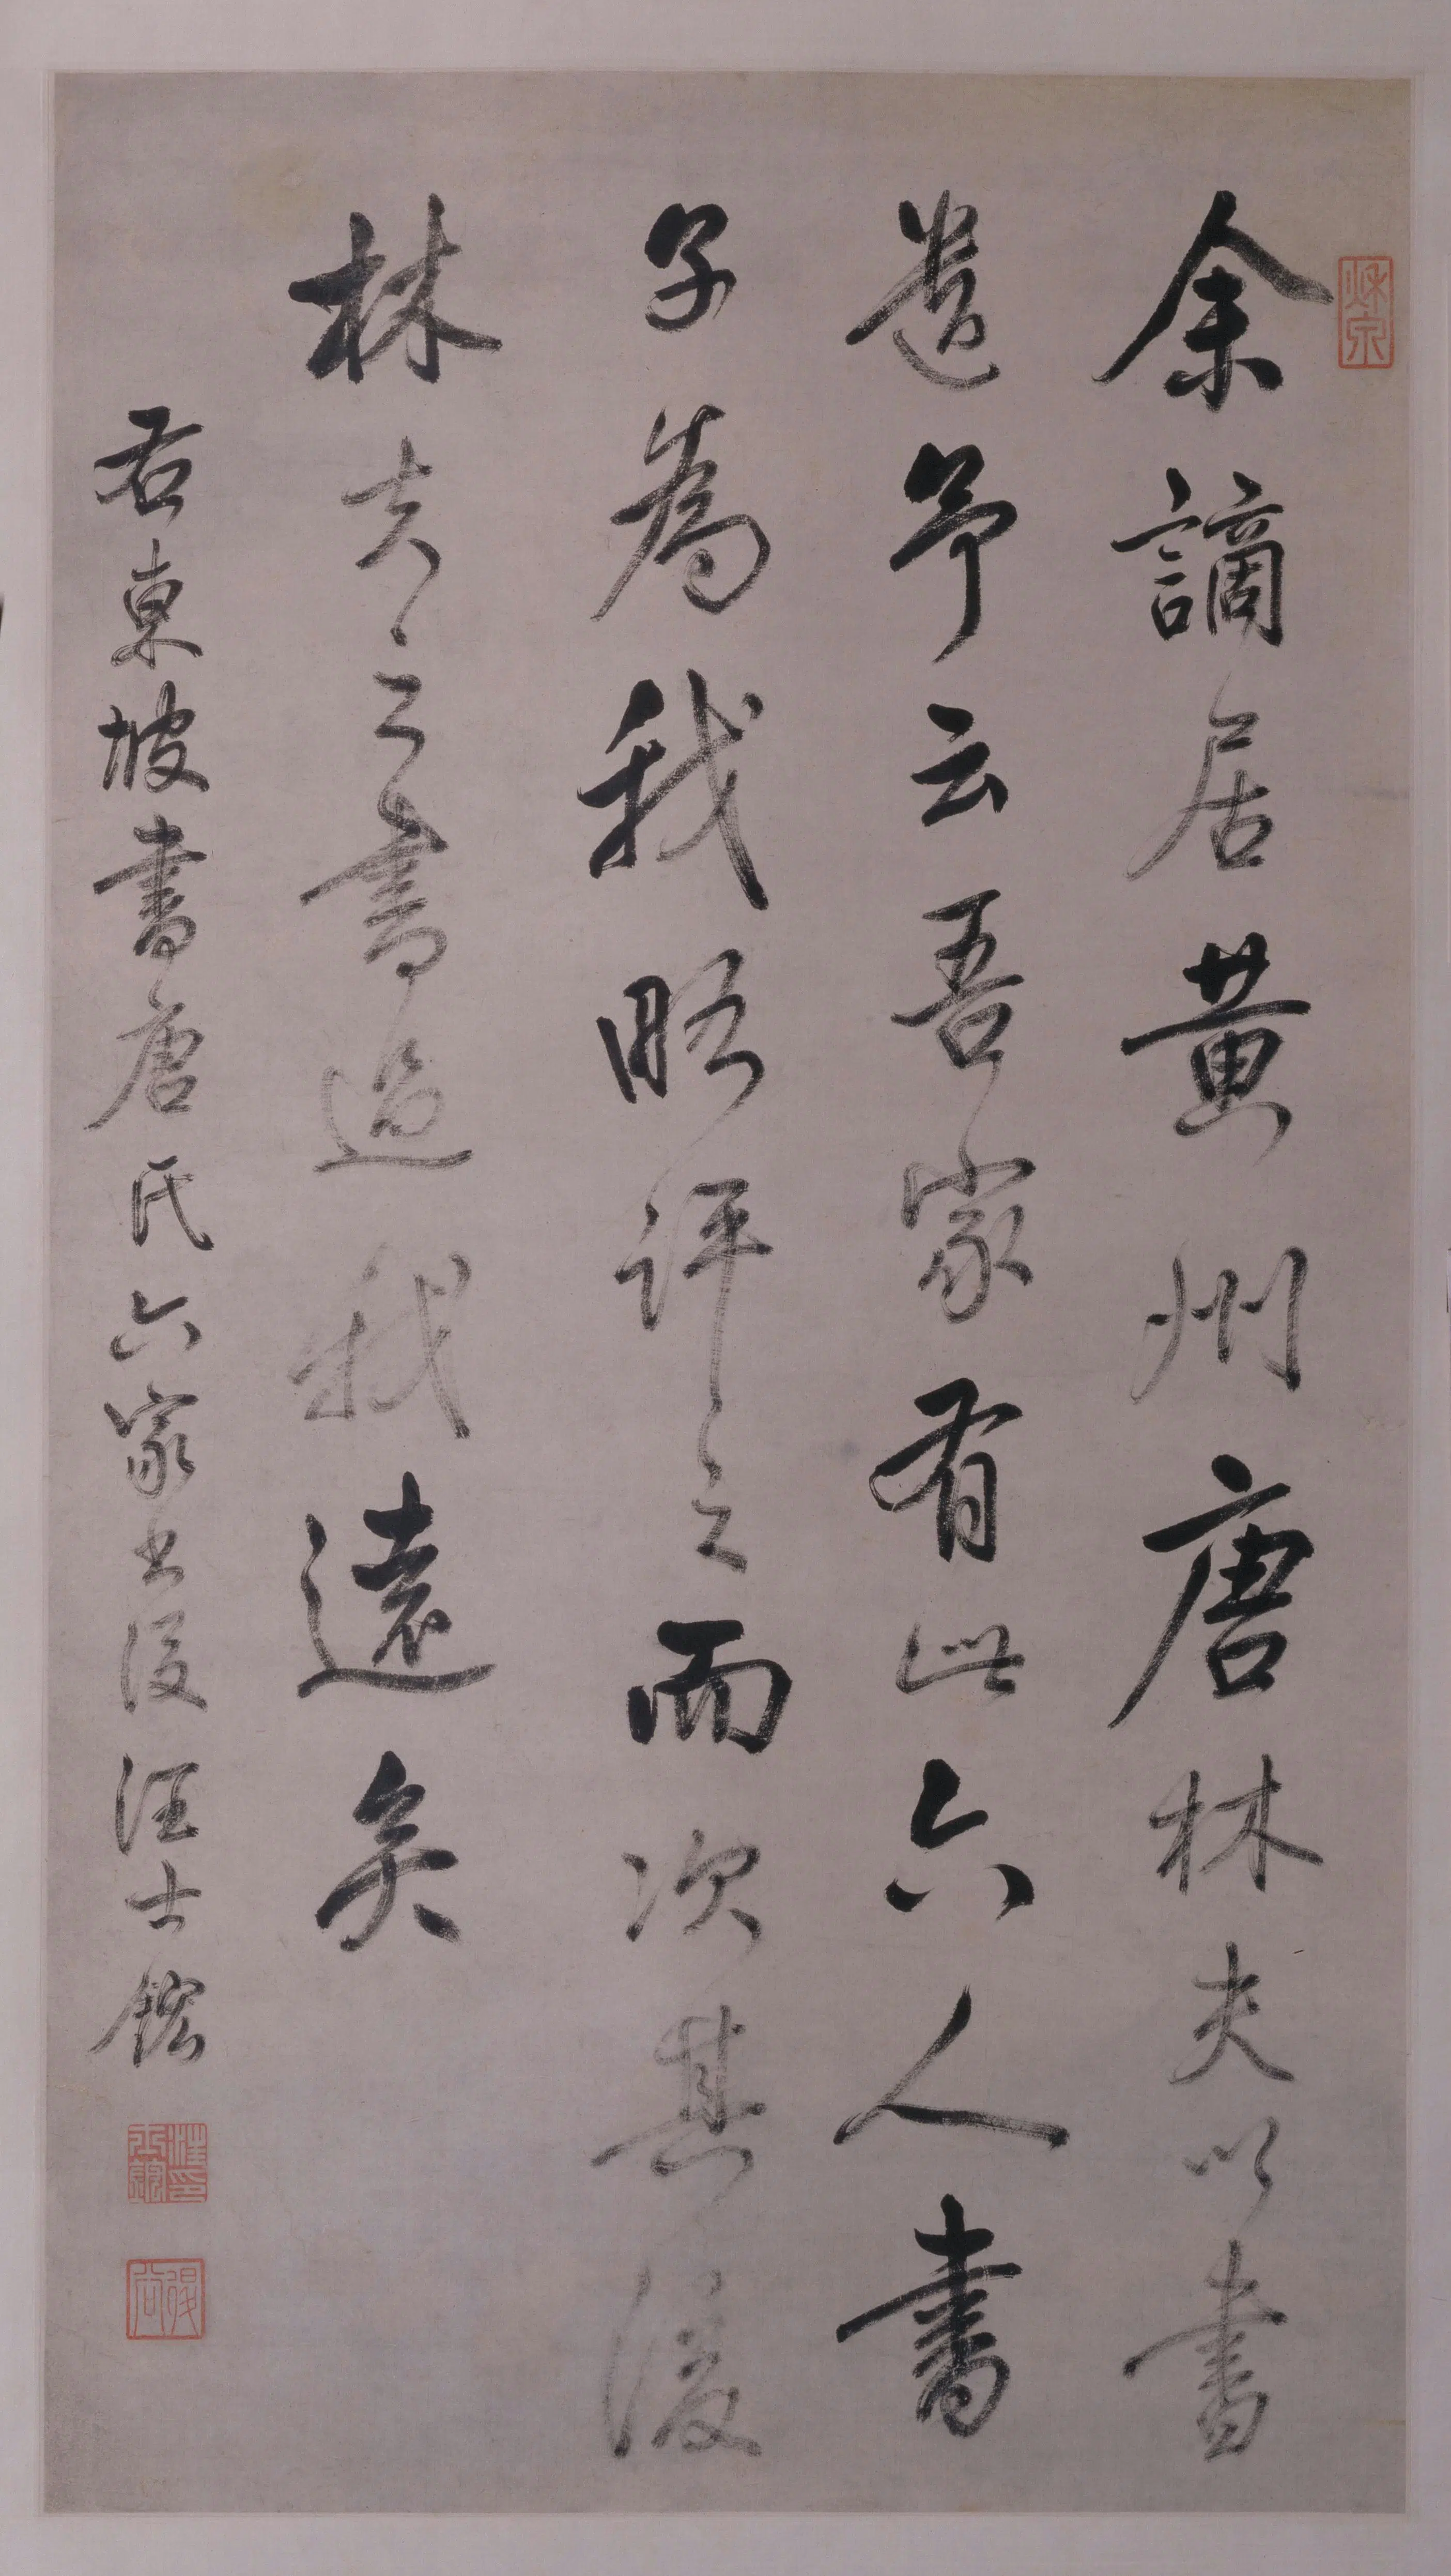 余謫居黄州唐林夫以書
遺予云吾家有此六人書
子為我略評之而次其後
林夫之書過我遠矣
右東坡書唐氏六家書後汪士鋐
汪士鋐印